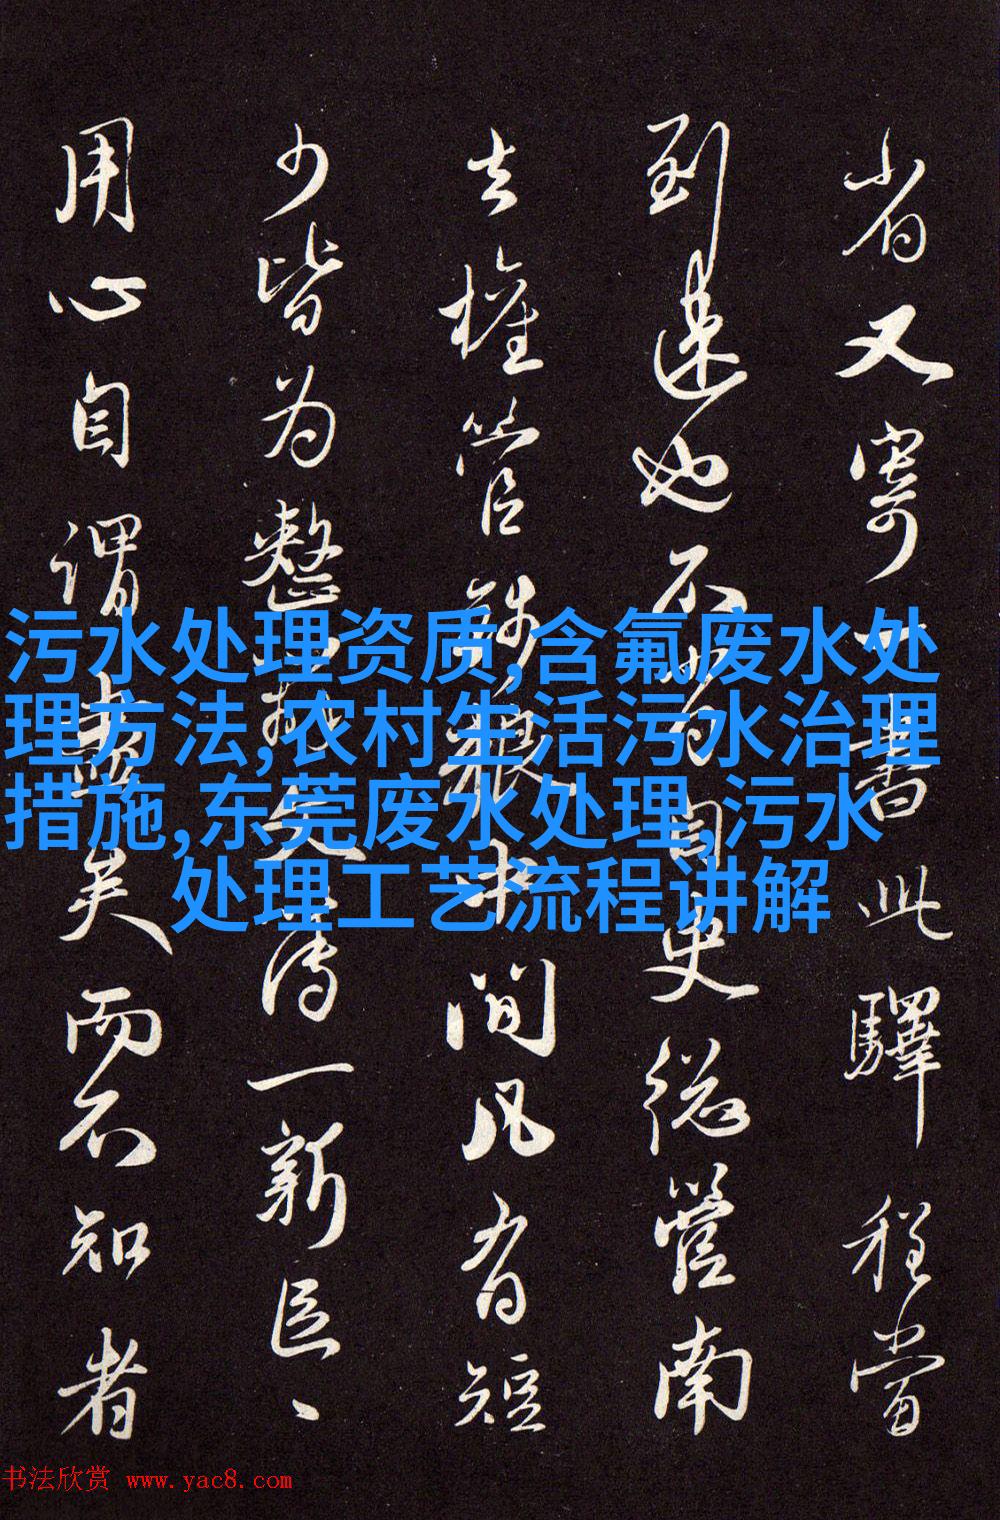 省又寄一書此驛程當
到遠也不
史總管南
去權管
間凡有短
少皆為整
一新臣、
用心自謂盡矣而不知者
污水处理资质,含氟废水处
理方法,农村生活污水治理
措施,东莞废水处理,污水
处理工艺流程讲解
书法欣赏 www.yac8.com